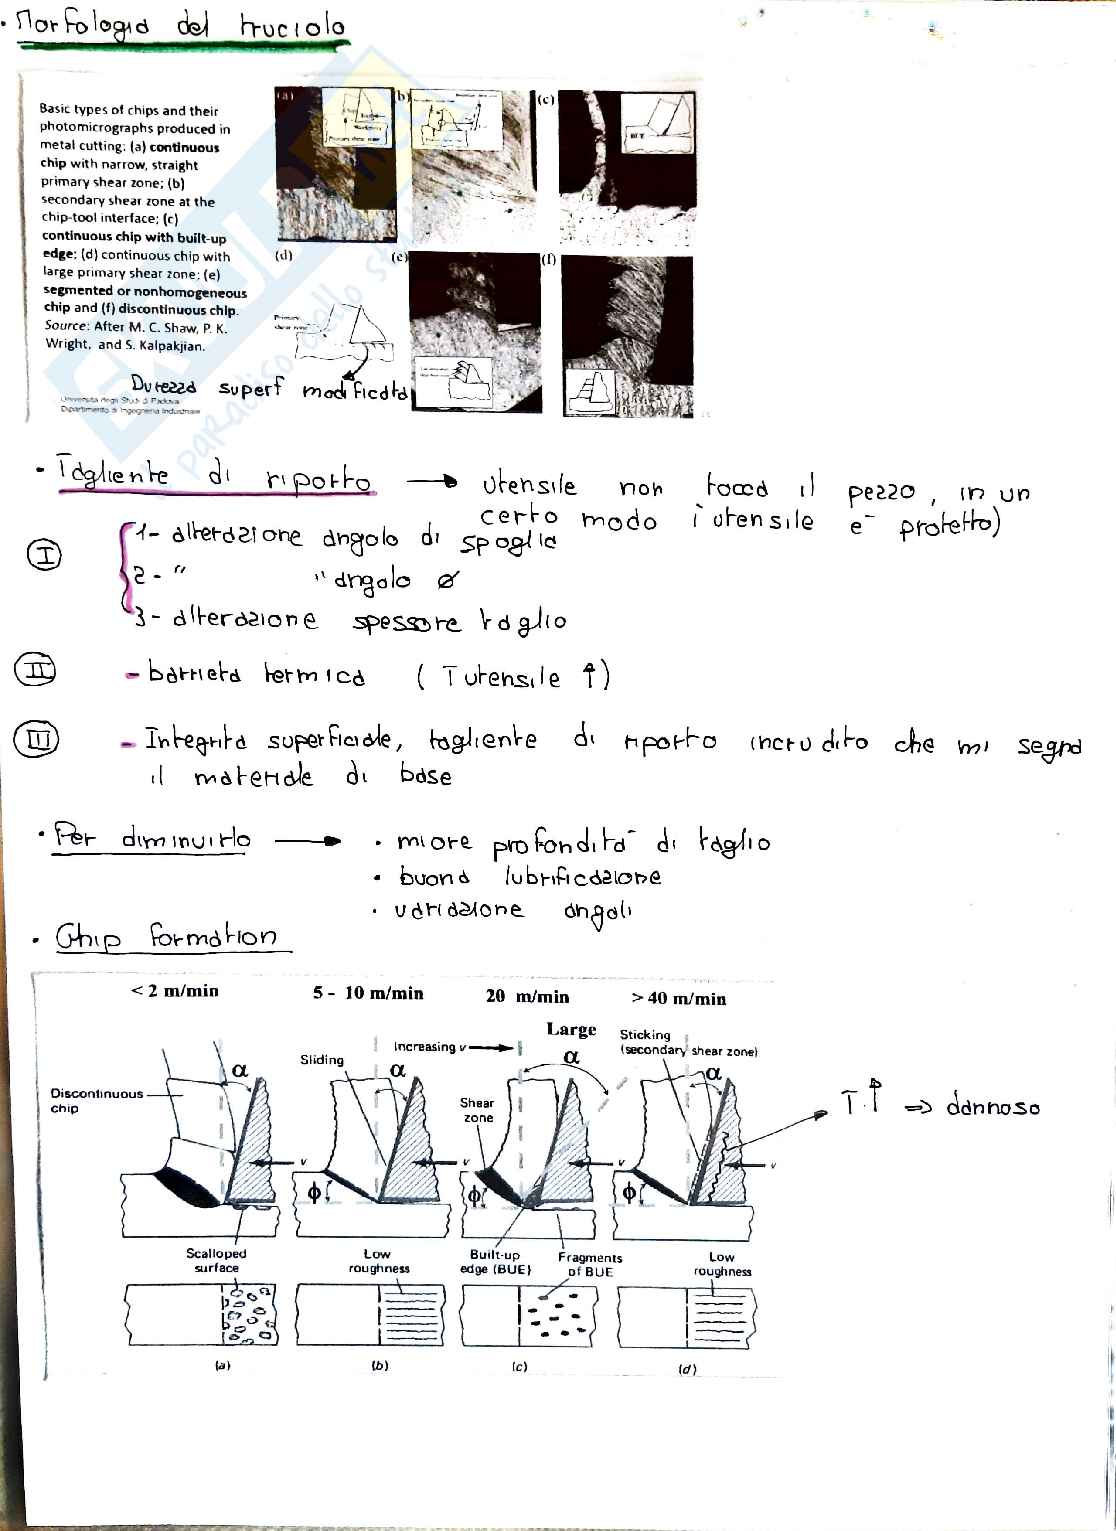 · Morfologia del truciolo
Basic types of chips and their
photomicrographs produced in
metal cutting: (a) continuous
chip with narrow, straight
primary shear zone; (b)
secondary shear zone at the
chip-tool interface; (c)
continuous chip with built-up
edge; (d) continuous chip with
large primary shear zone; (e)
segmented or nonhomogeneous
chip and (f) discontinuous chip.
Source: After M. C. Shaw, P. K.
Wright, and S. Kalpakjian.
(a) b) (c)
BUE
(d) (e) (f)
Primary
shear zone
Durezza superf modificata
Università degli Studi di Padova
Dipartimento di Ingegneria Industriale
· Tagliente di riporto → utensile non tocca il pezzo, in un
certo modo l'utensile è protetto)
I
1- alterazione angolo di spoglia
2- " " angolo ø
3- alterazione spessore taglio
II - barriera termica ( T utensile ↑)
III - Integrità superficiale, tagliente di riporto incrudito che mi segna
il materiale di base
· Per diminuirlo → · miore profondità di taglio
· buona lubrificazione
· variazione angoli
· Chip formation
< 2 m/min 5 - 10 m/min 20 m/min > 40 m/min
Large
Increasing v
Sticking
(secondary shear zone)
Sliding
α α α α
Discontinuous
chip
Shear
zone
T.↑ => dannoso
v v v v
ϕ ϕ ϕ
Scalloped
surface
Low
roughness
Built-up
edge (BUE)
Fragments
of BUE
Low
roughness
(a) (b) (c) (d)